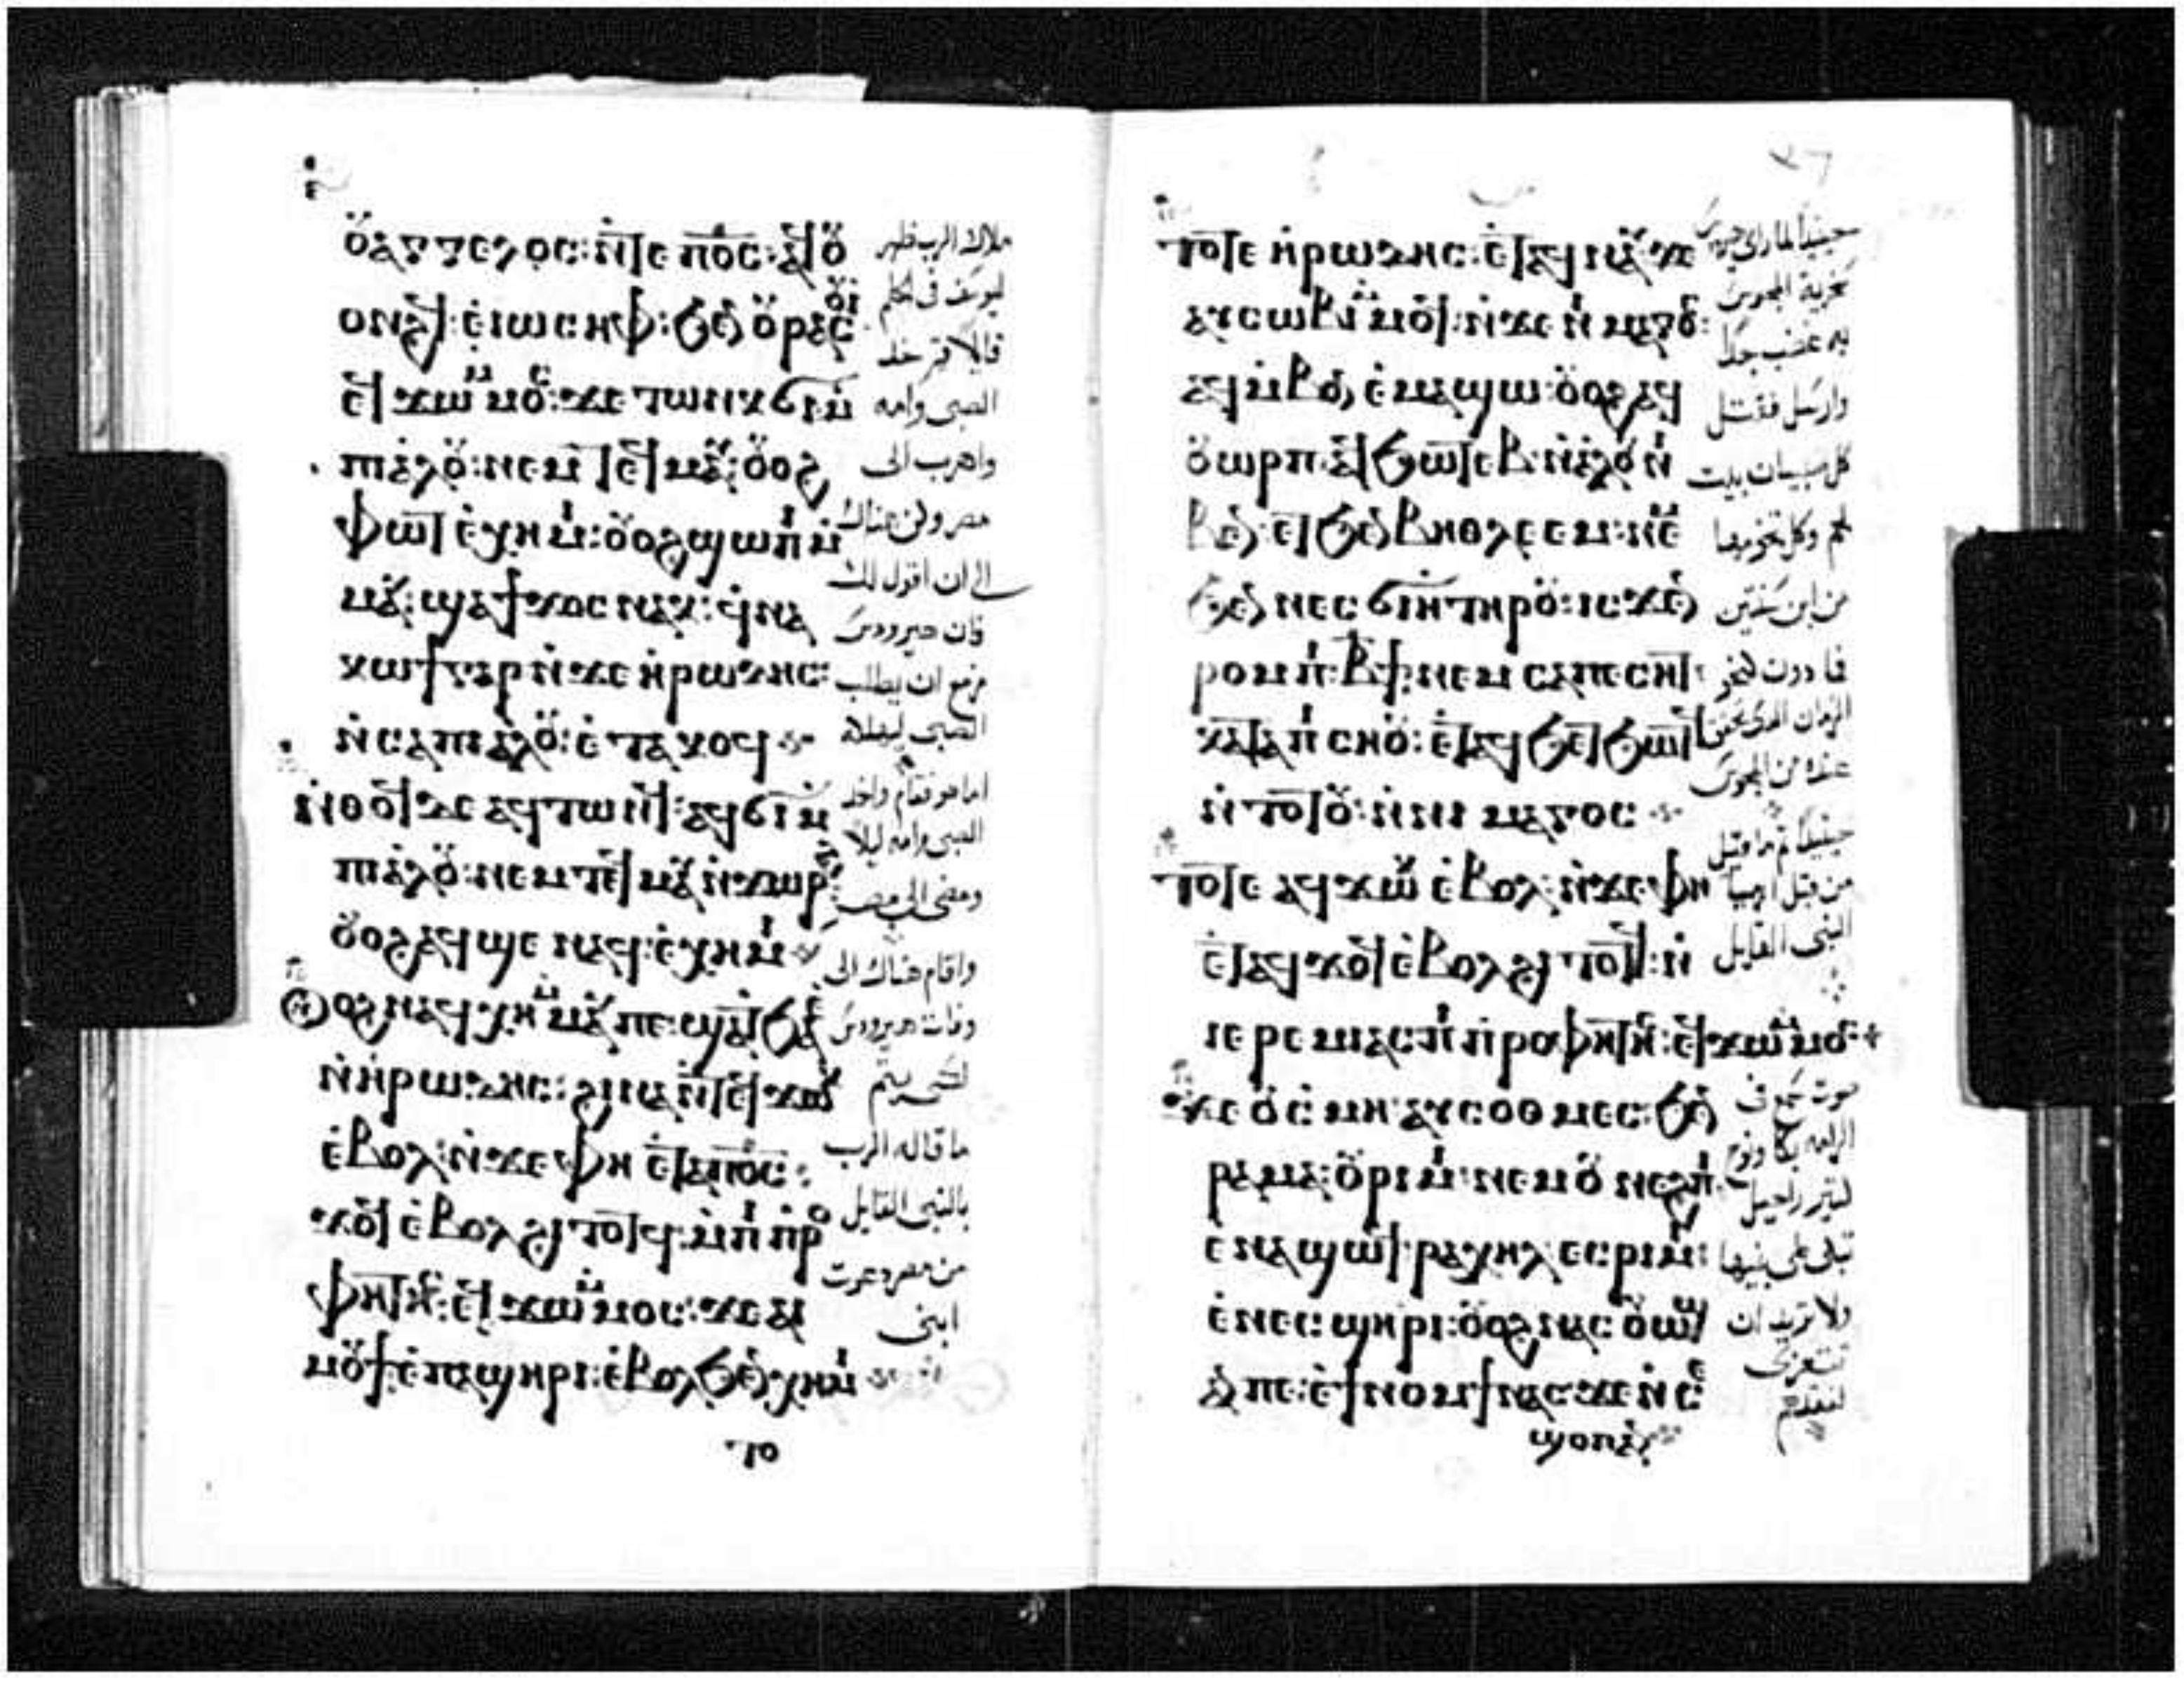 ⲟⲩⲁⲅⲅⲉⲗⲟⲥ: ⲛ̀ⲧⲉ ⲡⲟ̅ⲥ̅: ⲁϥⲟⲩ
ⲟⲛϩϥ: ⲉ̀ⲓⲱⲥⲏⲫ: ϧⲉⲛ ⲟⲩⲣⲁⲥⲟⲩⲓ
ⲉϥϫⲱ ⲙ̀ⲙⲟⲥ: ϫⲉ ⲧⲱⲛⲕ ϭⲓ ⲙ̀
ⲡⲓⲁ̀ⲗⲟⲩ: ⲛⲉⲙ ⲧⲉϥⲙⲁⲩ: ⲟⲩⲟϩ
ⲫⲱⲧ ⲉ̀ⲭⲏⲙⲓ: ⲟⲩⲟϩ ϣⲱⲡⲓ ⲙ̀
ⲙⲁⲩ: ϣⲁϯϫⲟⲥ ⲛⲁⲕ: ϥ̀ⲛⲁ
ⲕⲱϯ ⲅⲁⲣ ⲛ̀ϫⲉ ⲏ̀ⲣⲱⲇⲏⲥ:
ⲛ̀ⲥⲁ ⲡⲓⲁ̀ⲗⲟⲩ: ⲉ̀ⲧⲁⲕⲟϥ
ⲛ̀ⲑⲟϥ ⲇⲉ ⲁϥⲧⲱⲛϥ: ⲁϥϭⲓ ⲙ̀
ⲡⲓⲁ̀ⲗⲟⲩ: ⲛⲉⲙ ⲧⲉϥⲙⲁⲩ ⲛ̀ϫⲱⲣϩ:
ⲟⲩⲟϩ ⲁϥϣⲉ ⲛⲁϥ: ⲉ̀ⲭⲏⲙⲓ
ⲟⲩⲟϩ ⲛⲁϥⲭⲏ ⲙ̀ⲙⲁⲩ ⲡⲉ: ϣⲁⲧϧⲁⲉ̀
ⲛ̀ⲏ̀ⲣⲱⲇⲏⲥ: ϩⲓⲛⲁ ⲛ̀ⲧⲉϥϫⲱⲕ
ⲉ̀ⲃⲟⲗ: ⲛ̀ϫⲉ ⲫⲏ ⲉ̀ⲧⲁ ⲡⲟ̅ⲥ̅:
ϫⲟϥ ⲉ̀ⲃⲟⲗ ϩⲓⲧⲟⲧϥ: ⲙ̀ⲡⲓⲡ̀ⲣⲟ
ⲫⲏⲧⲏⲥ: ⲉϥϫⲱ ⲙ̀ⲙⲟⲥ: ϫⲉ ⲁⲓ
ⲙⲟⲩϯ ⲉ̀ⲡⲁϣⲏⲣⲓ: ⲉ̀ⲃⲟⲗ ϧⲉⲛ ⲭⲏⲙⲓ
ⲧⲟ
ملاك الرب ظهر
ليوسف في الحلم
قايلا قم خد
الصبي وامه
واهرب الى
مصر وكن هناك
الى ان اقول لك
فان هيرودس
مزمع ان يطلب
الصبي ليهلكه
اما هو فقام واخد
الصبي وامه ليلا
ومضى الى مصر
واقام هناك الى
وفات هيرودس
لكي يتم
ما قاله الرب
بالنبي القايل
من مصر دعوت
ابني
ⲧⲟⲧⲉ ⲏ̀ⲣⲱⲇⲏⲥ: ⲉ̀ⲧⲁϥⲛⲁⲩ ϫⲉ
ⲁⲩⲥⲱⲃⲓ ⲙ̀ⲙⲟϥ: ⲛ̀ϫⲉ ⲛⲓⲙⲁⲅⲟⲥ:
ⲁϥⲙ̀ⲃⲟⲛ ⲉ̀ⲙⲁϣⲱ: ⲟⲩⲟϩ ⲁϥ
ⲟⲩⲱⲣⲡ: ⲁϥϧⲱⲧⲉⲃ: ⲛ̀ⲁ̀ⲗⲟⲩ ⲛⲓ
ⲃⲉⲛ: ⲉⲧ ϧⲉⲛ ⲃⲏⲑⲗⲉⲉⲙ: ⲛⲉⲙ
ϧⲉⲛ ⲛⲉⲥϭⲓⲏ ⲧⲏⲣⲟⲩ: ⲓⲥϫⲉⲛ
ⲣⲟⲙⲡⲓ ⲃ̅ϯ: ⲛⲉⲙ ⲥⲁⲡⲉⲥⲏⲧ:
ⲕⲁⲧⲁ ⲡⲓⲥⲏⲟⲩ: ⲉ̀ⲧⲁϥϧⲉⲧϧⲱⲧϥ
ⲛ̀ⲧⲟⲧⲟⲩ: ⲛ̀ⲛⲓⲙⲁⲅⲟⲥ
ⲧⲟⲧⲉ ⲁϥϫⲱⲕ ⲉ̀ⲃⲟⲗ: ⲛ̀ϫⲉ ⲫⲏ
ⲉ̀ⲧⲁϥϫⲟϥ ⲉ̀ⲃⲟⲗ ϩⲓⲧⲟⲧϥ: ⲛ̀
ⲓⲉⲣⲉⲙⲓⲁⲥ: ⲡⲓⲡ̀ⲣⲟⲫⲏⲧⲏⲥ: ⲉϥϫⲱ ⲙ̀ⲙⲟⲥ:
ϫⲉ ⲟⲩⲥ̀ⲙⲏ ⲁⲩⲥⲟⲑⲙⲉⲥ: ϧⲉⲛ
ⲣⲁⲙⲁ: ⲟⲩⲣⲓⲙⲓ: ⲛⲉⲙ ⲟⲩⲛⲉϩⲡⲓ
ⲉⲛⲁϣⲱϥ: ⲣⲁⲭⲏⲗ ⲉⲥⲣⲓⲙⲓ:
ⲉ̀ⲛⲉⲥϣⲏⲣⲓ: ⲟⲩⲟϩ ⲛⲁⲥⲟⲩⲱϣ
ⲁⲛ ⲡⲉ: ⲉ̀ϯⲛⲟⲙϯ ⲛⲁⲥ ϫⲉ ⲛ̀ⲥⲉ
ϣⲟⲡ ⲁⲛ
حينيذ لما راى هيرودس
سخرية المجوس
به غضب جدا
وارسل فقتل
كل صبيان بيت
لحم وكل تخومها
من ابن سنتين
فما دون كنحو
الزمان الدي تحقق
عنده من المجوس
حينيذ تم ما قيل
من قبل ارميا
النبي القايل
صوت سمع في
الرامه بكا ونوح
كتير راحيل
تبكي على بنيها
ولا تريد ان
تتعزى
لفقدهم